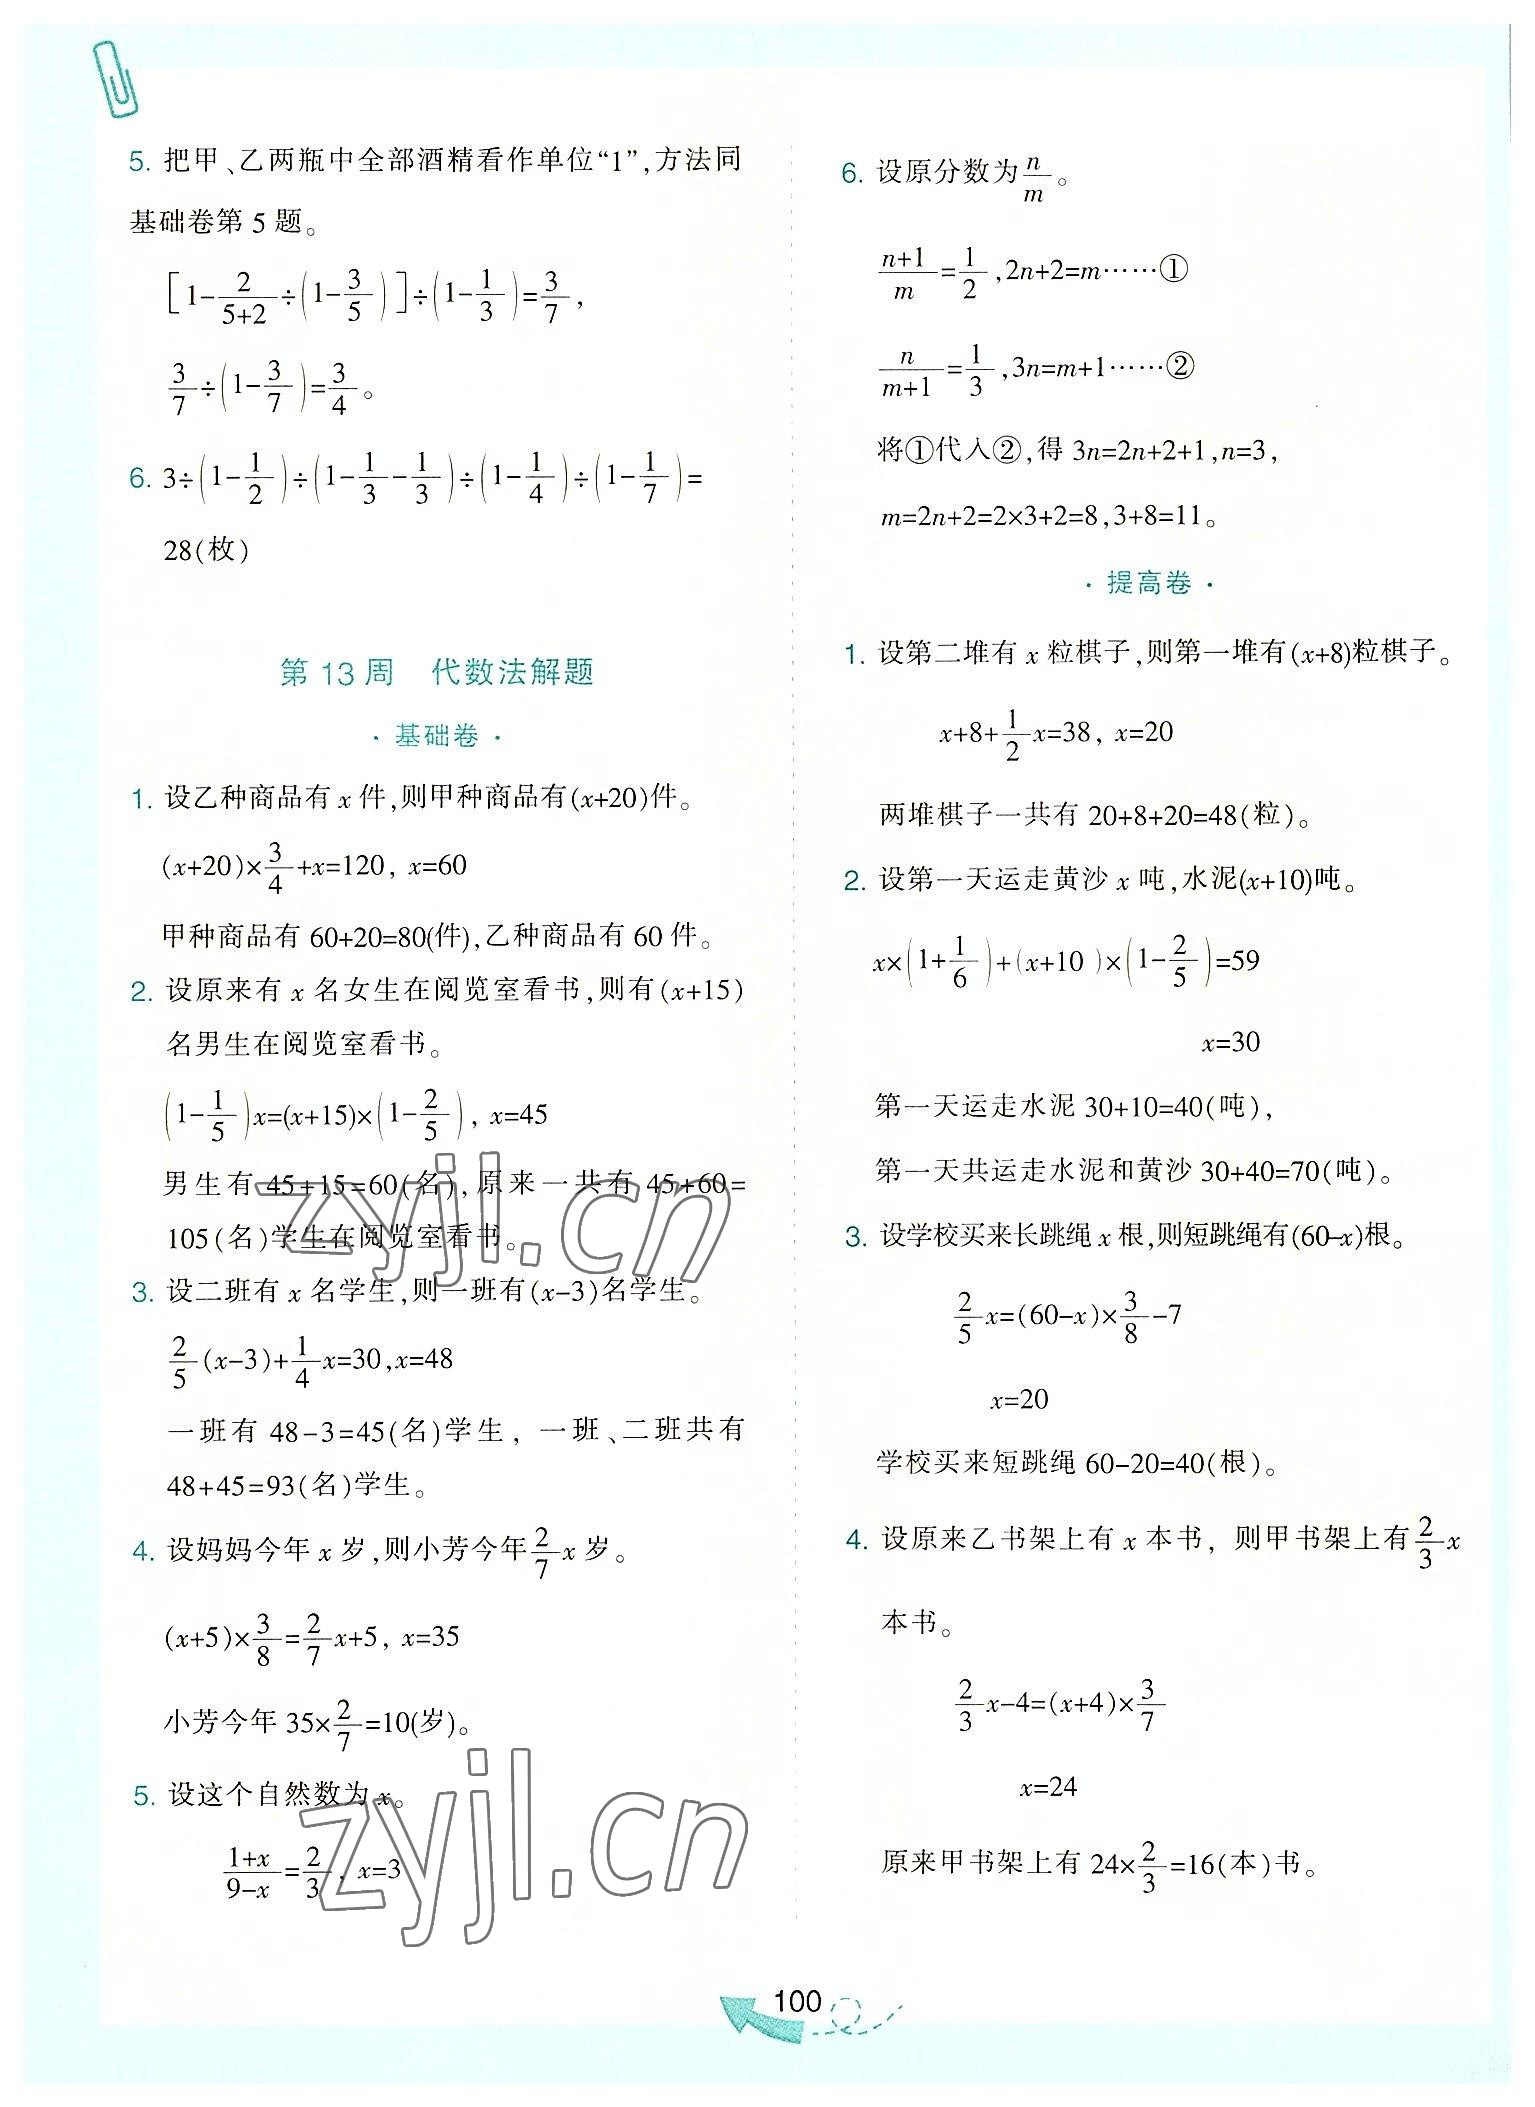 5. 把甲、乙两瓶中全部酒精看作单位“1”,方法同
基础卷第 5 题。
[1-2/(5+2)÷(1-3/5)]÷(1-1/3)=3/7,
3/7÷(1-3/7)=3/4。
6. 3÷(1-1/2)÷(1-1/3-1/3)÷(1-1/4)÷(1-1/7)=
28(枚)
第 13 周 代数法解题
· 基础卷 ·
1. 设乙种商品有 x 件,则甲种商品有(x+20)件。
(x+20)×3/4+x=120, x=60
甲种商品有 60+20=80(件),乙种商品有 60 件。
2. 设原来有 x 名女生在阅览室看书,则有(x+15)
名男生在阅览室看书。
(1-1/5)x=(x+15)×(1-2/5), x=45
男生有 45+15=60(名),原来一共有 45+60=
105(名)学生在阅览室看书。
3. 设二班有 x 名学生,则一班有(x-3)名学生。
2/5(x-3)+1/4x=30,x=48
一班有 48-3=45(名)学生, 一班、二班共有
48+45=93(名)学生。
4. 设妈妈今年 x 岁,则小芳今年2/7x 岁。
(x+5)×3/8=2/7x+5, x=35
小芳今年 35×2/7=10(岁)。
5. 设这个自然数为 x。
(1+x)/(9-x)=2/3, x=3
6. 设原分数为n/m。
(n+1)/m=1/2,2n+2=m……①
n/(m+1)=1/3,3n=m+1……②
将①代入②,得 3n=2n+2+1,n=3,
m=2n+2=2×3+2=8,3+8=11。
· 提高卷 ·
1. 设第二堆有 x 粒棋子,则第一堆有(x+8)粒棋子。
x+8+1/2x=38, x=20
两堆棋子一共有 20+8+20=48(粒)。
2. 设第一天运走黄沙 x 吨,水泥(x+10)吨。
x×(1+1/6)+(x+10)×(1-2/5)=59
x=30
第一天运走水泥 30+10=40(吨),
第一天共运走水泥和黄沙 30+40=70(吨)。
3. 设学校买来长跳绳 x 根,则短跳绳有(60-x)根。
2/5x=(60-x)×3/8-7
x=20
学校买来短跳绳 60-20=40(根)。
4. 设原来乙书架上有 x 本书, 则甲书架上有2/3x
本书。
2/3x-4=(x+4)×3/7
x=24
原来甲书架上有 24×2/3=16(本)书。
zyjl.cn
zyjl.cn
100